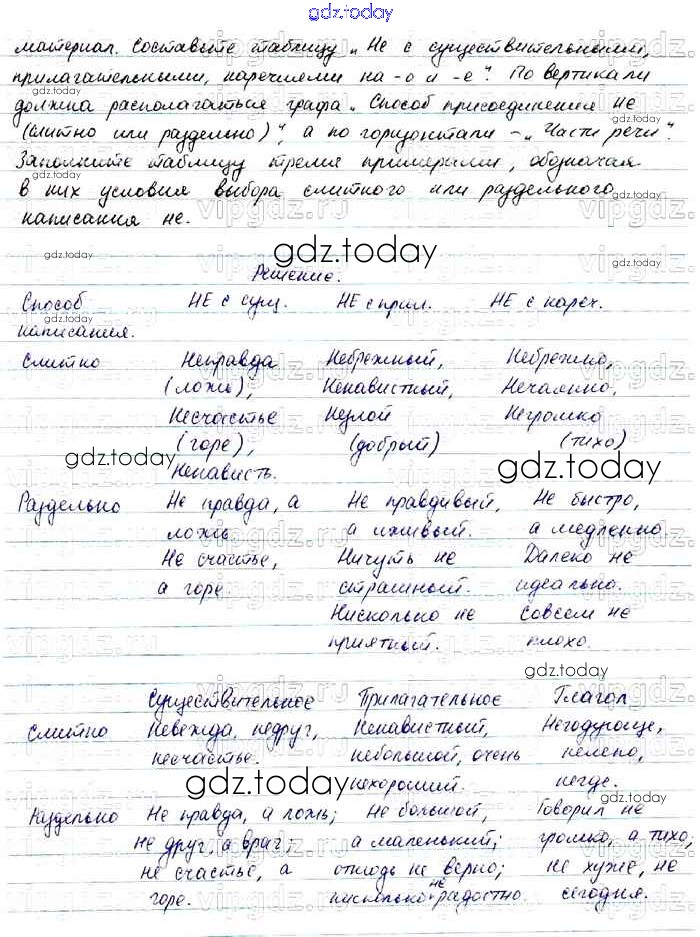 gdz.today
материал. Составьте таблицу „Не с существительными,
прилагательными, наречиями на -о и -е". По вертикали
должна располагаться графа „Способ присоединения не
(слитно или раздельно)", а по горизонтали - „Части речи".
Заполните таблицу тремя примерами, обозначая
в них условия выбора слитного или раздельного
написания не.
Решение.
Способ написания. НЕ с сущ. НЕ с прил. НЕ с нареч.
Слитно Неправда Небрежный, Небрежно,
(ложь), Ненавистный, Нечаянно,
Несчастье Незлой Негромко
(горе), (добрый) (тихо)
Ненависть.
Раздельно Не правда, а Не правдивый, Не быстро,
ложь а лживый. а медленно
Не счастье, Ничуть не Далеко не
а горе страшный. идеально.
Нисколько не Совсем не
приятный. плохо.
Существительное Прилагательное Глагол
Слитно Невежда, недруг, Ненавистный, Негодующе,
несчастье. небольшой, очень нелепо,
нехороший. негде.
Раздельно Не правда, а ложь; Не большой, Говорил не
не друг, а враг; а маленький; громко, а тихо,
не счастье, а отнюдь не верно; не хуже, не
горе. нисколько не радостно. сегодня.
gdz.today
gdz.today
gdz.today
gdz.today
gdz.today
gdz.today
gdz.today
gdz.today
gdz.today
gdz.today
gdz.today
gdz.today
vipgdz.ru